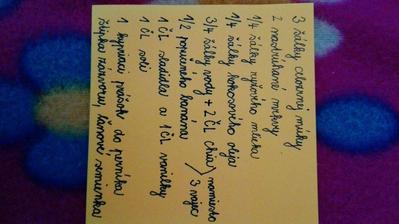 3 šálky celozrnej múky
2 nastrúhané mrkvy
1/4 šálky ryžového mlieka
1/4 šálky kokosového oleja
3/4 šálky vody + 2 ČL chia \ namiesto
/ 3 vajec
1/2 popučeného banána
1 ČL sladidla a 1 ČL vanilky
1 ČL soli
1 kypriaci prášok do perníka
štipka zázvoru, ľanové semienka